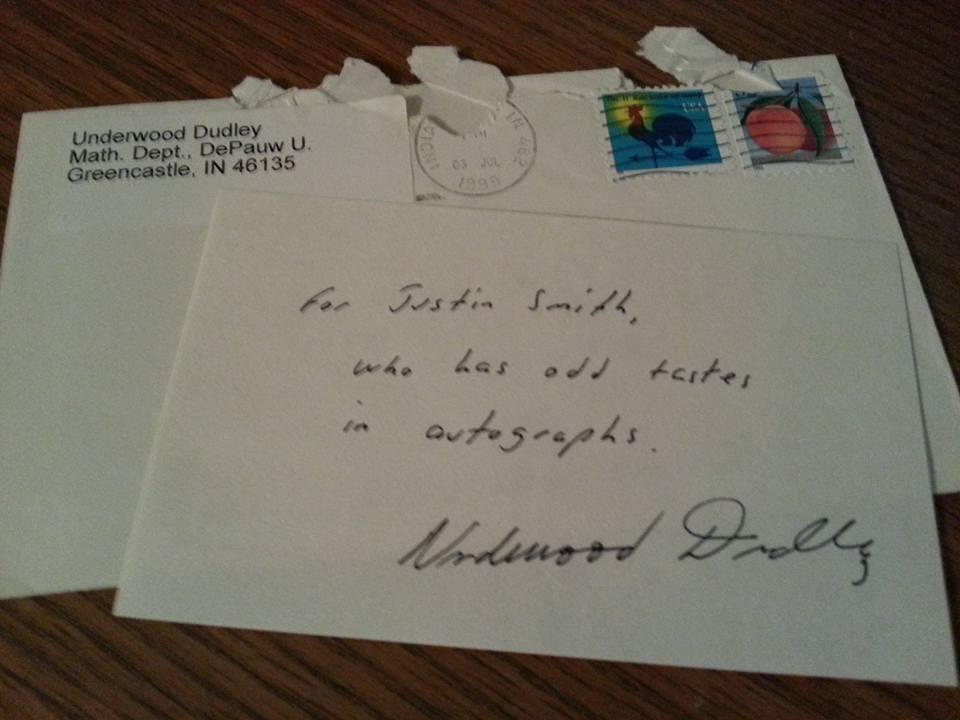 Underwood Dudley
Math. Dept., DePauw U.
Greencastle, IN 46135
IN 462
03 JUL
1998
USA
For Justin Smith,
who has odd tastes
in autographs.
Underwood Dudley